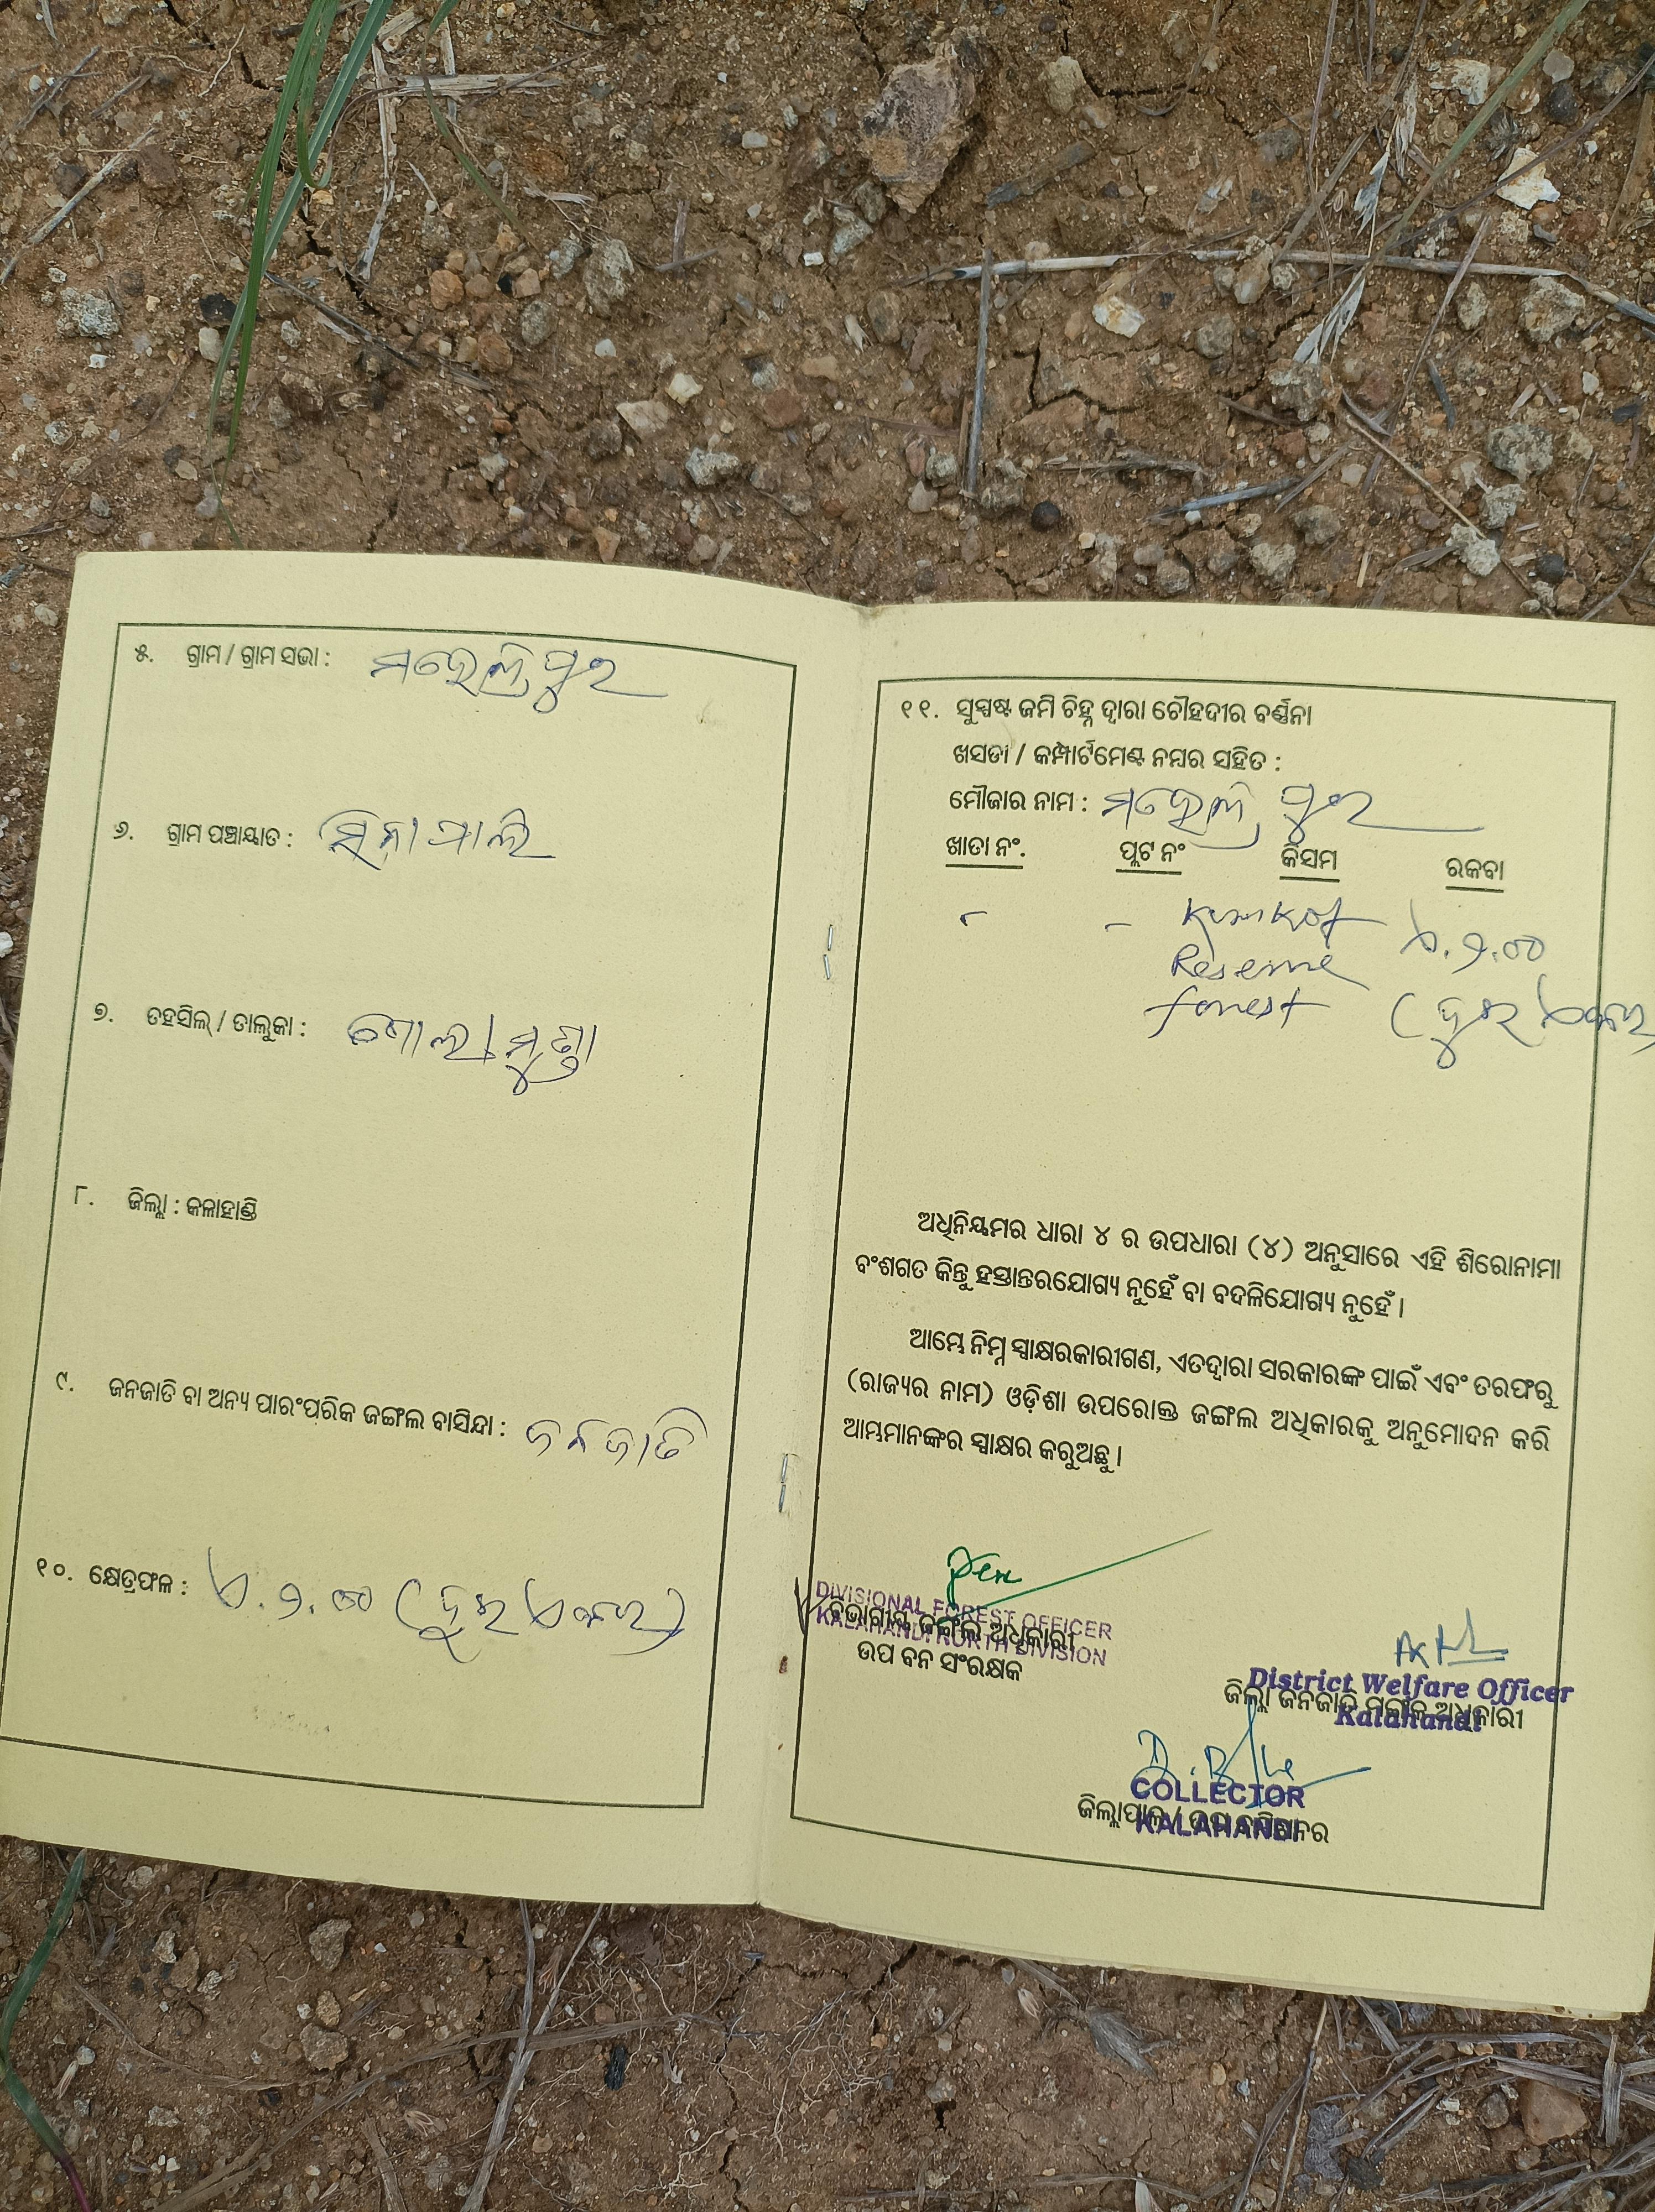 ୫. ଗ୍ରାମ / ଗ୍ରାମ ସଭା :
୬. ଗ୍ରାମ ପଞ୍ଚାୟାତ : ସିନାପାଲି
୭. ତହସିଲ୍ / ତାଲୁକା : ଗୋଲାମୁଣ୍ଡା
୮. ଜିଲ୍ଲା : କଳାହାଣ୍ଡି
୯. ଜନଜାତି ବା ଅନ୍ୟ ପାରଂପରିକ ଜଙ୍ଗଲ ବାସିନ୍ଦା : ଜନଜାତି
୧୦. କ୍ଷେତ୍ରଫଳ : ଏ.୨.୦୦ (ଦୁଇ ଏକର)
୧୧. ସୁସ୍ପଷ୍ଟ ଜମି ଚିହ୍ନ ଦ୍ୱାରା ଚୌହଦୀର ବର୍ଣ୍ଣନା
ଖସଡା / କମ୍ପାର୍ଟମେଣ୍ଟ ନମ୍ବର ସହିତ :
ମୌଜାର ନାମ :
ଖାତା ନଂ. ପ୍ଲଟ ନଂ କିସମ ରକବା
- - ଏ.୨.୦୦
Reserve
forest (ଦୁଇ ଏକର
ଅଧିନିୟମର ଧାରା ୪ ର ଉପଧାରା (୪) ଅନୁସାରେ ଏହି ଶିରୋନାମା
ବଂଶଗତ କିନ୍ତୁ ହସ୍ତାନ୍ତରଯୋଗ୍ୟ ନୁହେଁ ବା ବଦଳିଯୋଗ୍ୟ ନୁହେଁ ।
ଆମ୍ଭେ ନିମ୍ନ ସ୍ୱାକ୍ଷରକାରୀଗଣ, ଏତଦ୍ୱାରା ସରକାରଙ୍କ ପାଇଁ ଏବଂ ତରଫରୁ
(ରାଜ୍ୟର ନାମ) ଓଡ଼ିଶା ଉପରୋକ୍ତ ଜଙ୍ଗଲ ଅଧିକାରକୁ ଅନୁମୋଦନ କରି
ଆମ୍ଭମାନଙ୍କର ସ୍ୱାକ୍ଷର କରୁଅଛୁ ।
DIVISIONAL FOREST OFFICER
ବିଭାଗୀୟ ଜଙ୍ଗଲ ଅଧିକାରୀ
KALAHANDI NORTH DIVISION
ଉପ ବନ ସଂରକ୍ଷକ
District Welfare Officer
ଜିଲ୍ଲା ଜନଜାତି ମଙ୍ଗଳ ଅଧିକାରୀ
Kalahandi
COLLECTOR
ଜିଲ୍ଲାପାଳ / ଉପ କମିଶନର
KALAHANDI